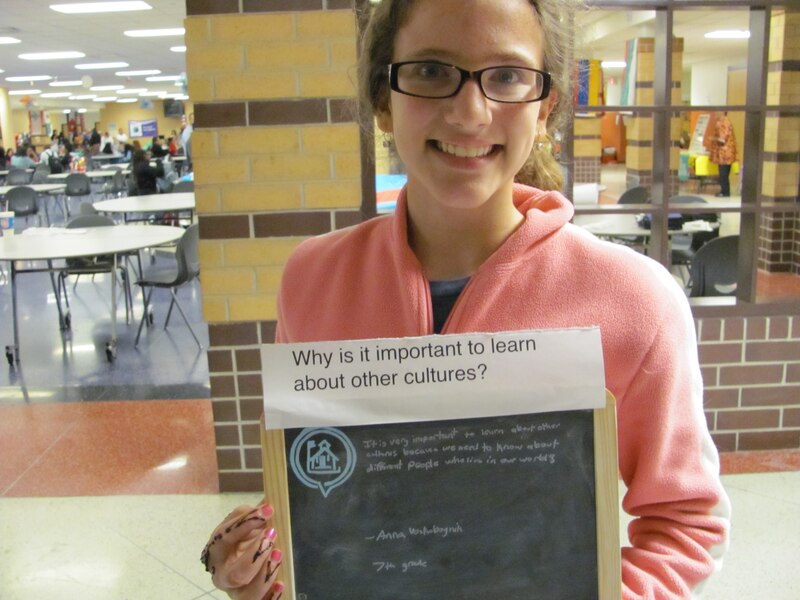 Why is it important to learn
about other cultures?
It is very important to learn about other
cultures because we need to know about
different People who live in our world
- Anna
7th grade